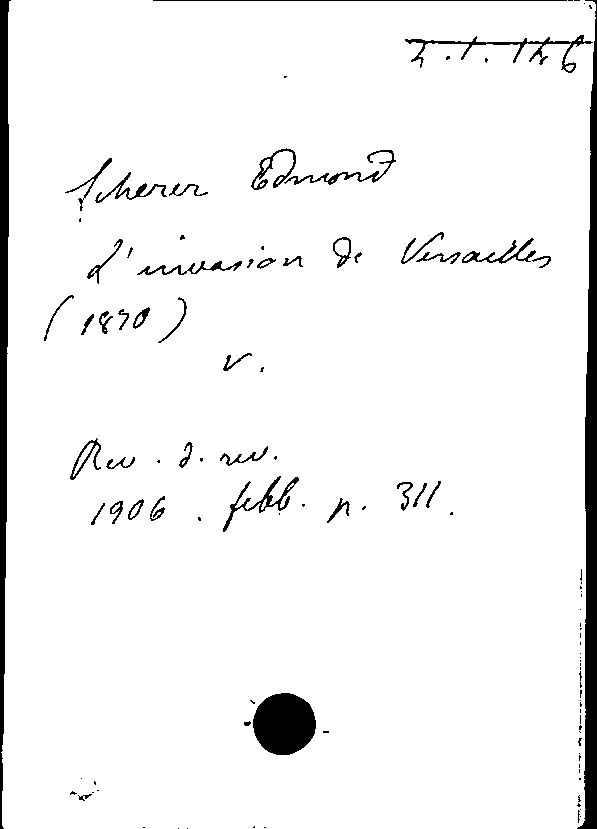 4.1.146
Scherer Edmond
L'invasion de Versailles
(1870)
v.
Rev. d. rev.
1906. febb. p. 311.